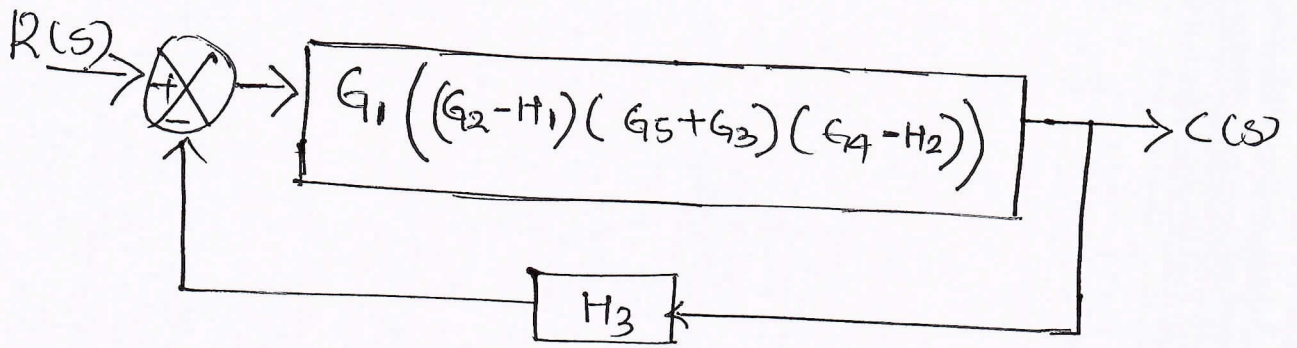 R(s)
+
-
G1((G2-H1)(G5+G3)(G4-H2))
C(s)
H3